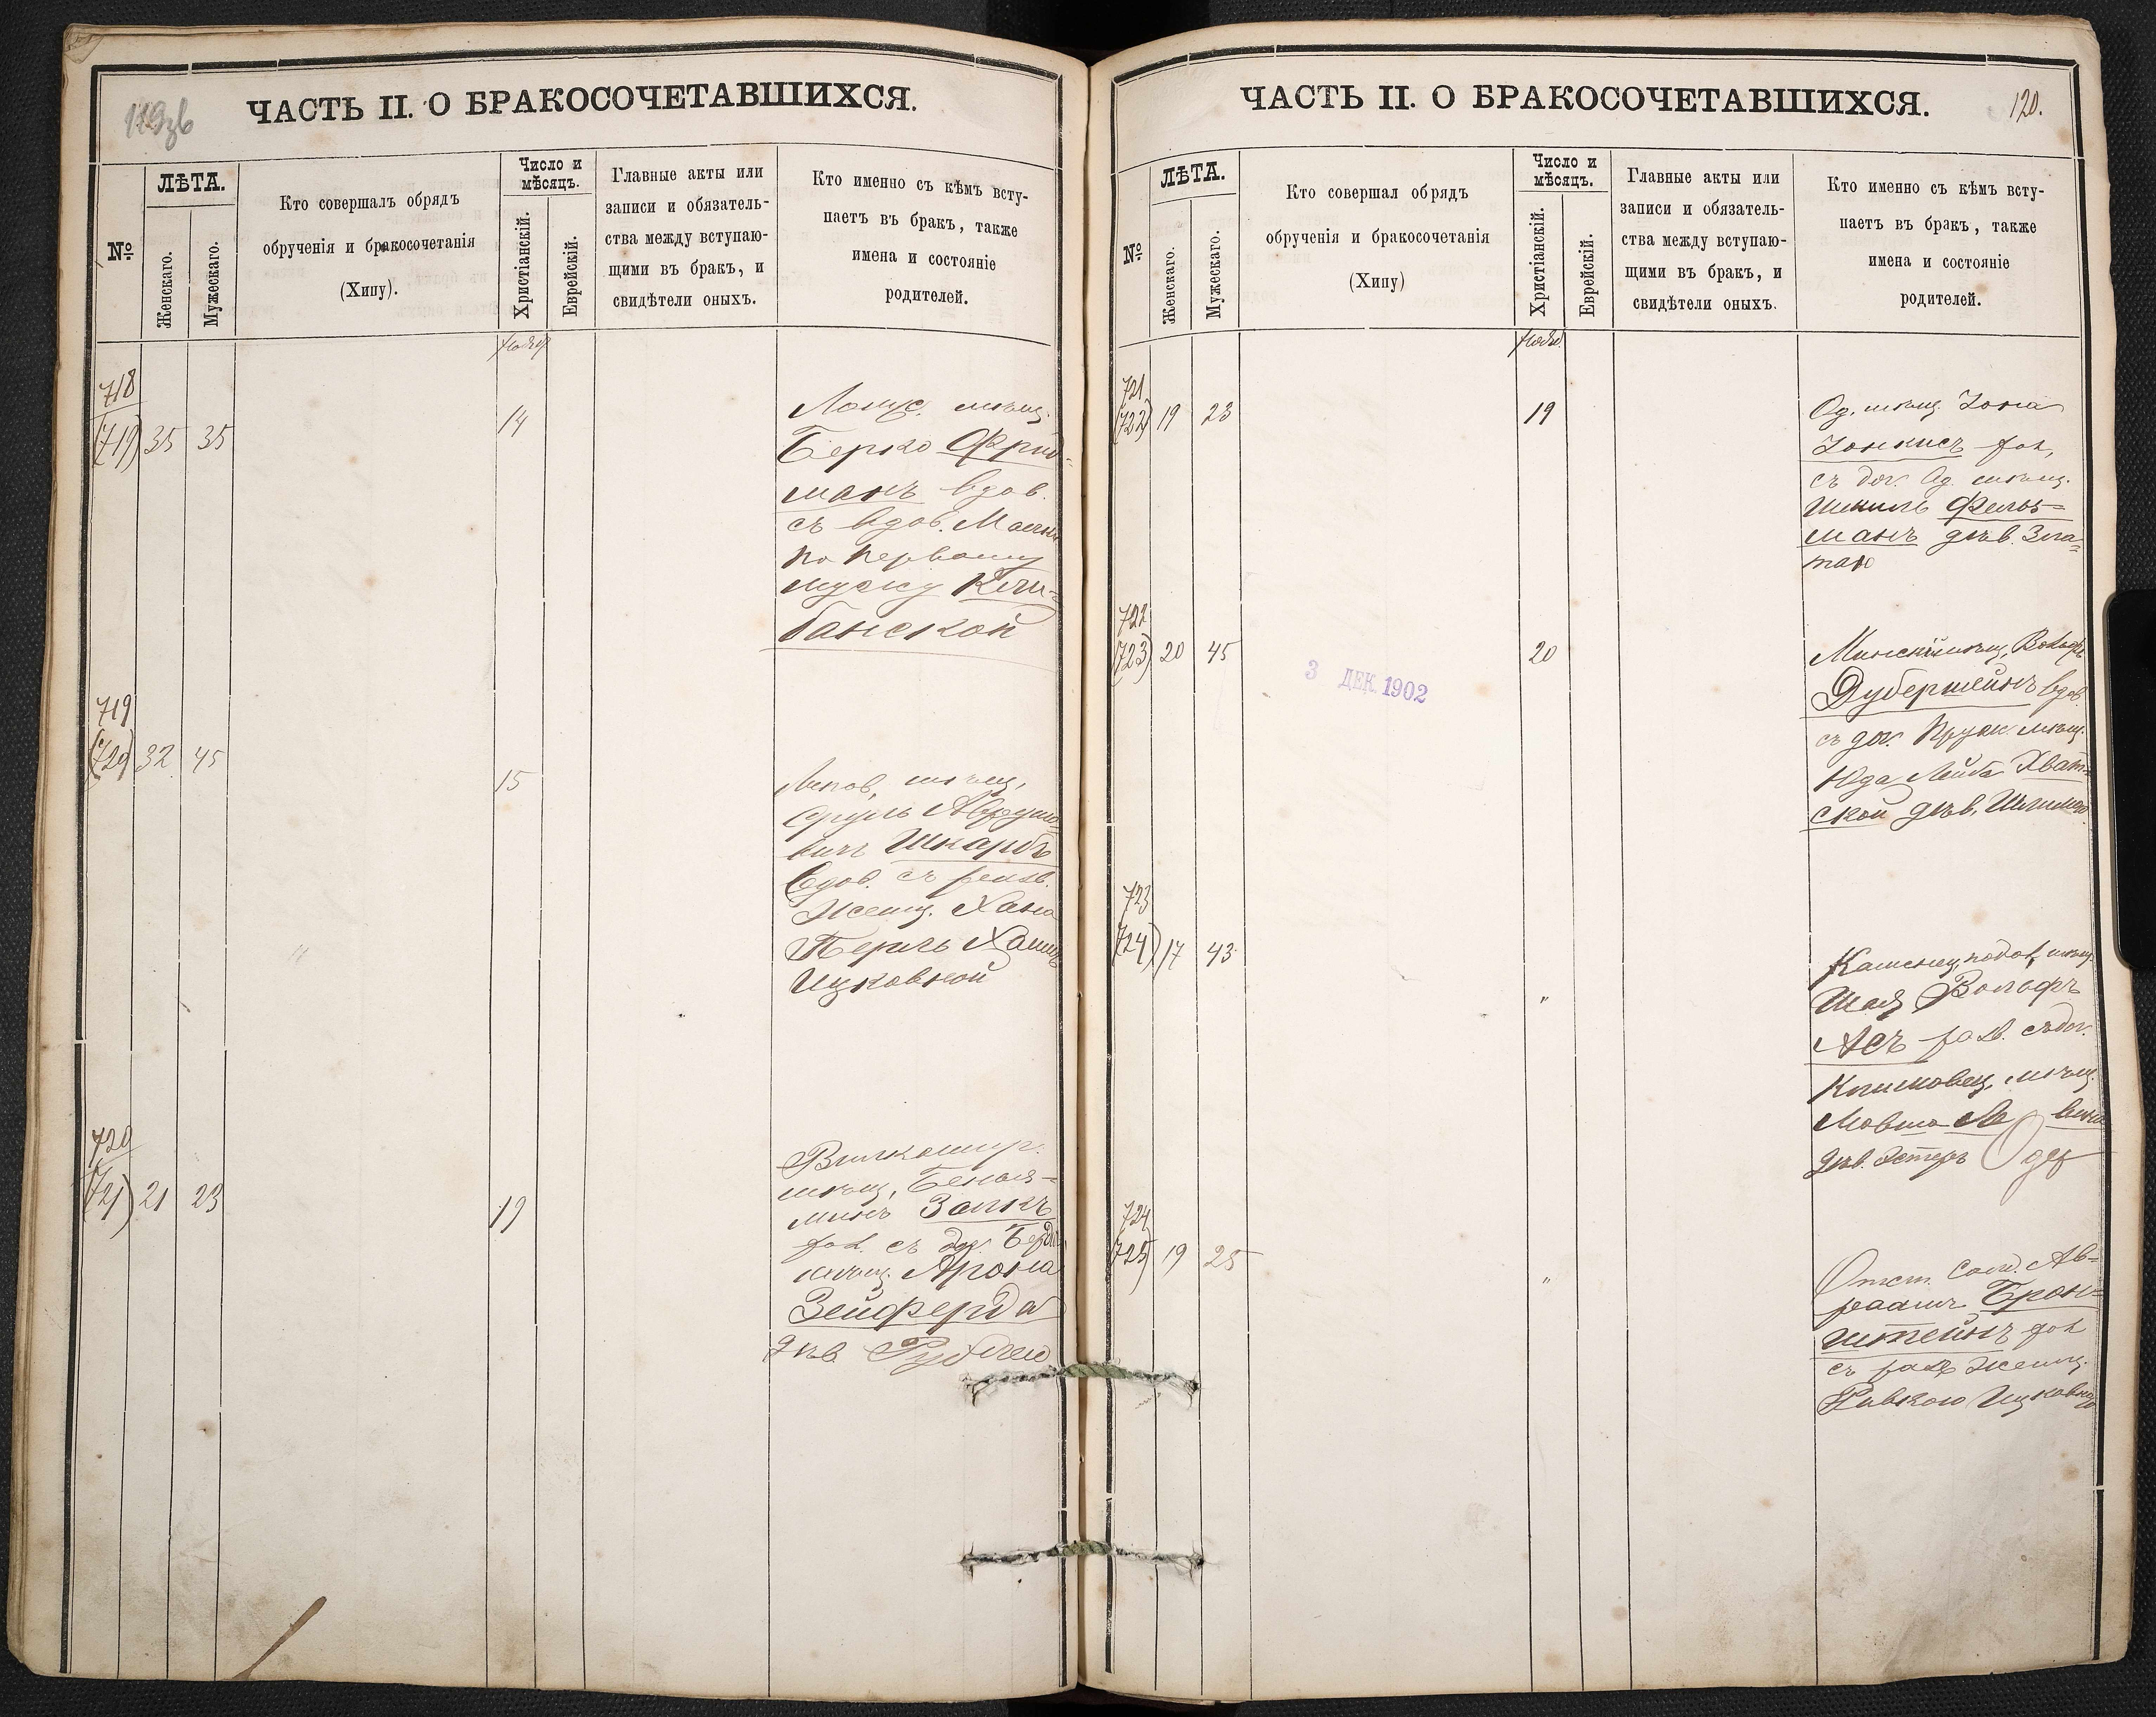 119зв
ЧАСТЬ II. О БРАКОСОЧЕТАВШИХСЯ.
№
ЛѢТА.
Женскаго.
Мужескаго.
Кто совершалъ обрядъ
обрученія и бракосочетанія
(Хипу).
Число и
мѣсяцъ.
Христіанскій.
Еврейскій.
Главные акты или
записи и обязатель-
ства между вступаю-
щими въ бракъ, и
свидѣтели оныхъ.
Кто именно съ кѣмъ всту-
паетъ въ бракъ, также
имена и состояніе
родителей.
718
(719) 35 35
14
мѣщ.
Берко Фрид-
манъ вдов.
съ вдов.
по первому
мужу
банской
719
(720) 32 45
15
мѣщ.
Сруль
Шкарбъ
вдов. съ
женщ. Хана
Перль
Ицковной
720
(721) 21 23
19
Вилкомир.
мѣщ. Бенья-
минъ Залкъ
хол. съ доч.
мѣщ. Арона
Зейферда
дѣв.
ЧАСТЬ II. О БРАКОСОЧЕТАВШИХСЯ.
120.
№
ЛѢТА.
Женскаго.
Мужескаго.
Кто совершал обрядъ
обрученія и бракосочетанія
(Хипу)
Число и
мѣсяцъ.
Христіанскій.
Еврейскій.
Главные акты или
записи и обязатель-
ства между вступаю-
щими въ бракъ, и
свидѣтели оныхъ.
Кто именно съ кѣмъ всту-
паетъ въ бракъ, также
имена и состояніе
родителей.
721
(722) 19 23
19
Од. мѣщ. Іона
Іонкисъ хол.
съ доч. Од. мѣщ.
Шмиль Фельз-
манъ дѣв. Зла-
тою
722
(723) 20 45
3 ДЕК. 1902
20
Минскій мѣщ. Вольфъ
Дуберштейнъ вдов.
съ доч. Пруж. мѣщ.
Юда Лейба Хват-
ской дѣв.
723
(724) 17 43
"
Каменец. подол. мѣщ.
Шая Вольфъ
Асъ разв. съ доч.
мѣщ.
Мовша
дѣв. Эстеръ
724
(725) 19 25
"
Отст. солд. Ав-
раамъ Брон-
штейнъ хол
съ разв женщ.
Ривкою Ицковною